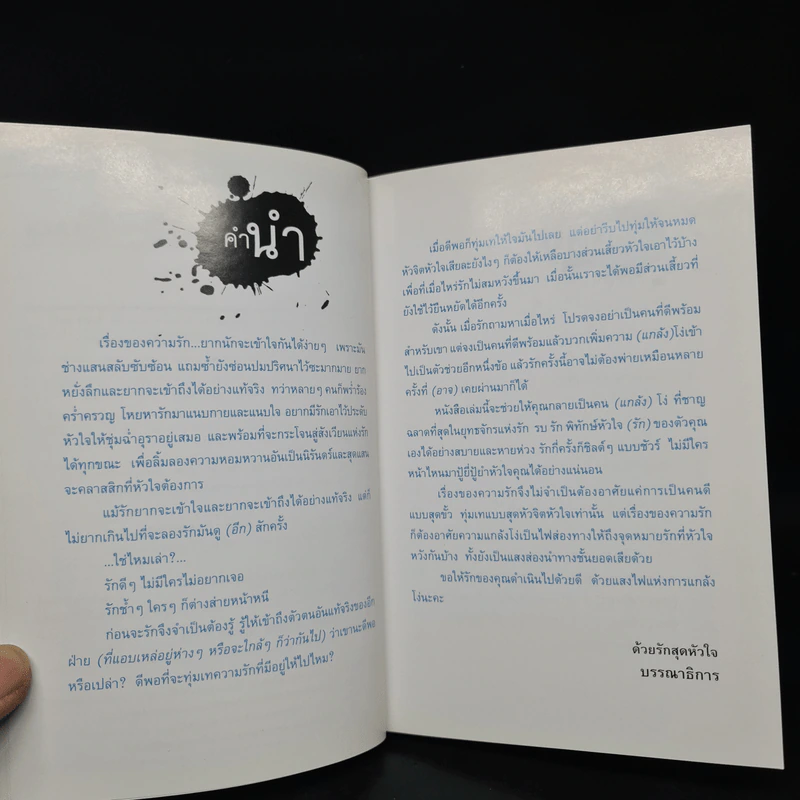 คำนำ
เรื่องของความรัก...ยากนักจะเข้าใจกันได้ง่ายๆ เพราะมัน
ช่างแสนสลับซับซ้อน แถมซ้ำยังซ่อนปมปริศนาไว้ซะมากมาย ยาก
หยั่งลึกและยากจะเข้าถึงได้อย่างแท้จริง ทว่าหลายๆ คนก็พร่ำร้อง
คร่ำครวญ โหยหารักมาแนบกายและแนบใจ อยากมีรักเอาไว้ประดับ
หัวใจให้ชุ่มฉ่ำอุราอยู่เสมอ และพร้อมที่จะกระโจนสู่สังเวียนแห่งรัก
ได้ทุกขณะ เพื่อลิ้มลองความหอมหวานอันเป็นนิรันดร์และสุดแสน
จะคลาสสิกที่หัวใจต้องการ
แม้รักยากจะเข้าใจและยากจะเข้าถึงได้อย่างแท้จริง แต่ก็
ไม่ยากเกินไปที่จะลองรักมันดู (อีก) สักครั้ง
...ใช่ไหมเล่า?...
รักดีๆ ไม่มีใครไม่อยากเจอ
รักช้ำๆ ใครๆ ก็ต่างส่ายหน้าหนี
ก่อนจะรักจึงจำเป็นต้องรู้ รู้ให้เข้าถึงตัวตนอันแท้จริงของอีก
ฝ่าย (ที่แอบเหล่อยู่ห่างๆ หรือจะใกล้ๆ ก็ว่ากันไป) ว่าเขานะดีพอ
หรือเปล่า? ดีพอที่จะทุ่มเทความรักที่มีอยู่ให้ไปไหม?
เมื่อดีพอก็ทุ่มเทให้ใจมันไปเลย แต่อย่ารีบไปทุ่มให้จนหมด
หัวจิตหัวใจเสียละยังไงๆ ก็ต้องให้เหลือบางส่วนเสี้ยวหัวใจเอาไว้บ้าง
เพื่อที่เมื่อไหร่รักไม่สมหวังขึ้นมา เมื่อนั้นเราจะได้พอมีส่วนเสี้ยวที่
ยังใช้ไว้ยืนหยัดได้อีกครั้ง
ดังนั้น เมื่อรักถามหาเมื่อไหร่ โปรดจงอย่าเป็นคนที่ดีพร้อม
สำหรับเขา แต่จงเป็นคนที่ดีพร้อมแล้วบวกเพิ่มความ (แกล้ง) โง่เข้า
ไปเป็นตัวช่วยอีกหนึ่งข้อ แล้วรักครั้งนี้อาจไม่ต้องพ่ายเหมือนหลาย
ครั้งที่ (อาจ) เคยผ่านมาก็ได้
หนังสือเล่มนี้จะช่วยให้คุณกลายเป็นคน (แกล้ง) โง่ ที่ชาญ
ฉลาดที่สุดในยุทธจักรแห่งรัก รบ รัก พิทักษ์หัวใจ (รัก) ของตัวคุณ
เองได้อย่างสบายและหายห่วง รักกี่ครั้งก็ชิลด์ๆ แบบชัวร์ ไม่มีใคร
หน้าไหนมาปู้ยี่ปู้ยำหัวใจคุณได้อย่างแน่นอน
เรื่องของความรักจึงไม่จำเป็นต้องอาศัยแค่การเป็นคนดี
แบบสุดขั้ว ทุ่มเทแบบสุดหัวจิตหัวใจเท่านั้น แต่เรื่องของความรัก
ก็ต้องอาศัยความแกล้งโง่เป็นไฟส่องทางให้ถึงจุดหมายรักที่หัวใจ
หวังกันบ้าง ทั้งยังเป็นแสงส่องนำทางชั้นยอดเสียด้วย
ขอให้รักของคุณดำเนินไปด้วยดี ด้วยแสงไฟแห่งการแกล้ง
โง่นะคะ
ด้วยรักสุดหัวใจ
บรรณาธิการ